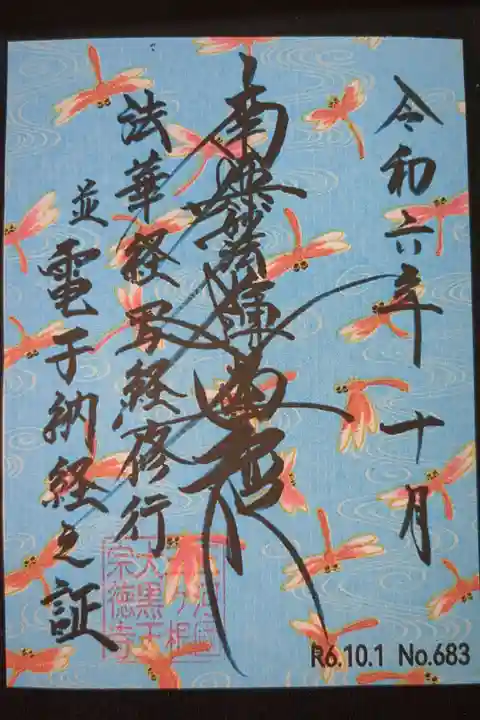 令和六年十月
南無妙法蓮華経
法華経写経修行
並電子納経之証
大黒天
宗徳寺
R6.10.1 No.683